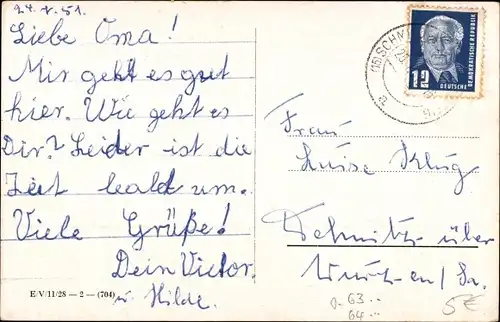 Liebe Oma!
Mir geht es gut
hier. Wie geht es
Dir? Leider ist die
Zeit bald um.
Viele Grüße!
Dein Victor.
u. Hilde.
E/V/11/28 — 2 — (704)
12
DEUTSCHE
DEMOKRATISCHE REPUBLIK
Frau
Luise
über
/Sa.
63..
64..
5€